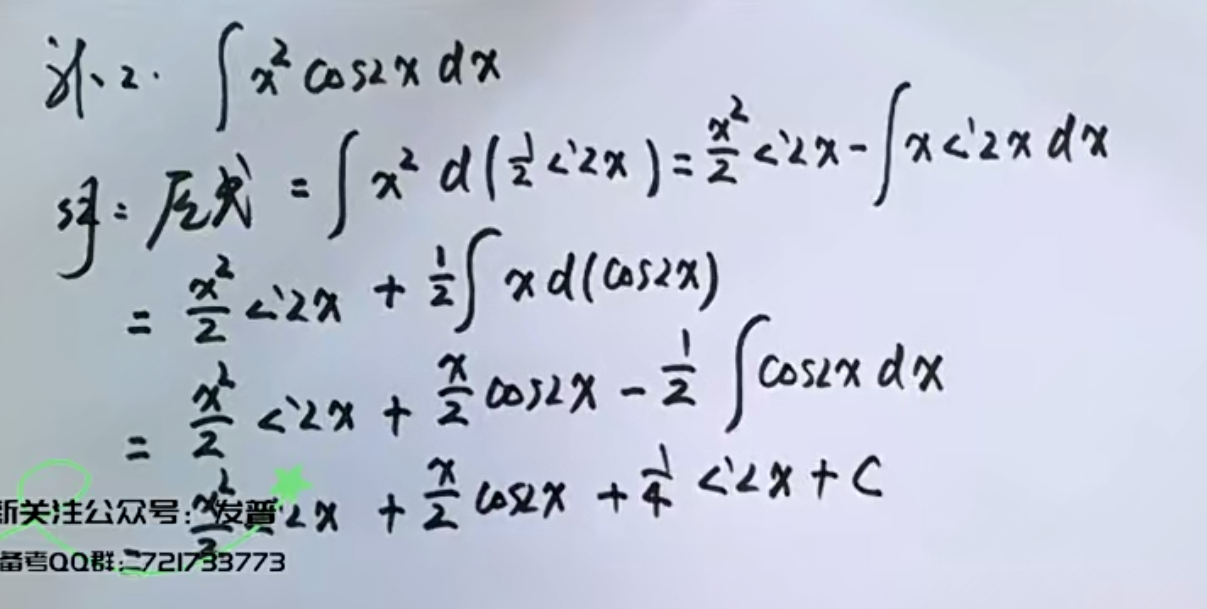 例2. ∫x² cos2x dx
解: 原式 = ∫x² d(½ sin2x) = x²/2 sin2x - ∫x sin2x dx
= x²/2 sin2x + ½∫x d(cos2x)
= x²/2 sin2x + x/2 cos2x - ½∫cos2x dx
= x²/2 sin2x + x/2 cos2x + ¼ sin2x + C
新关注公众号:发普
备考QQ群:721733773